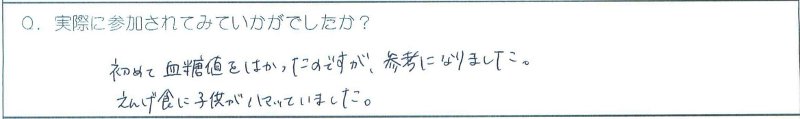 Q. 実際に参加されてみていかがでしたか？
初めて血糖値をはかったのですが、参考になりました。
えんげ食に子供がハマっていました。